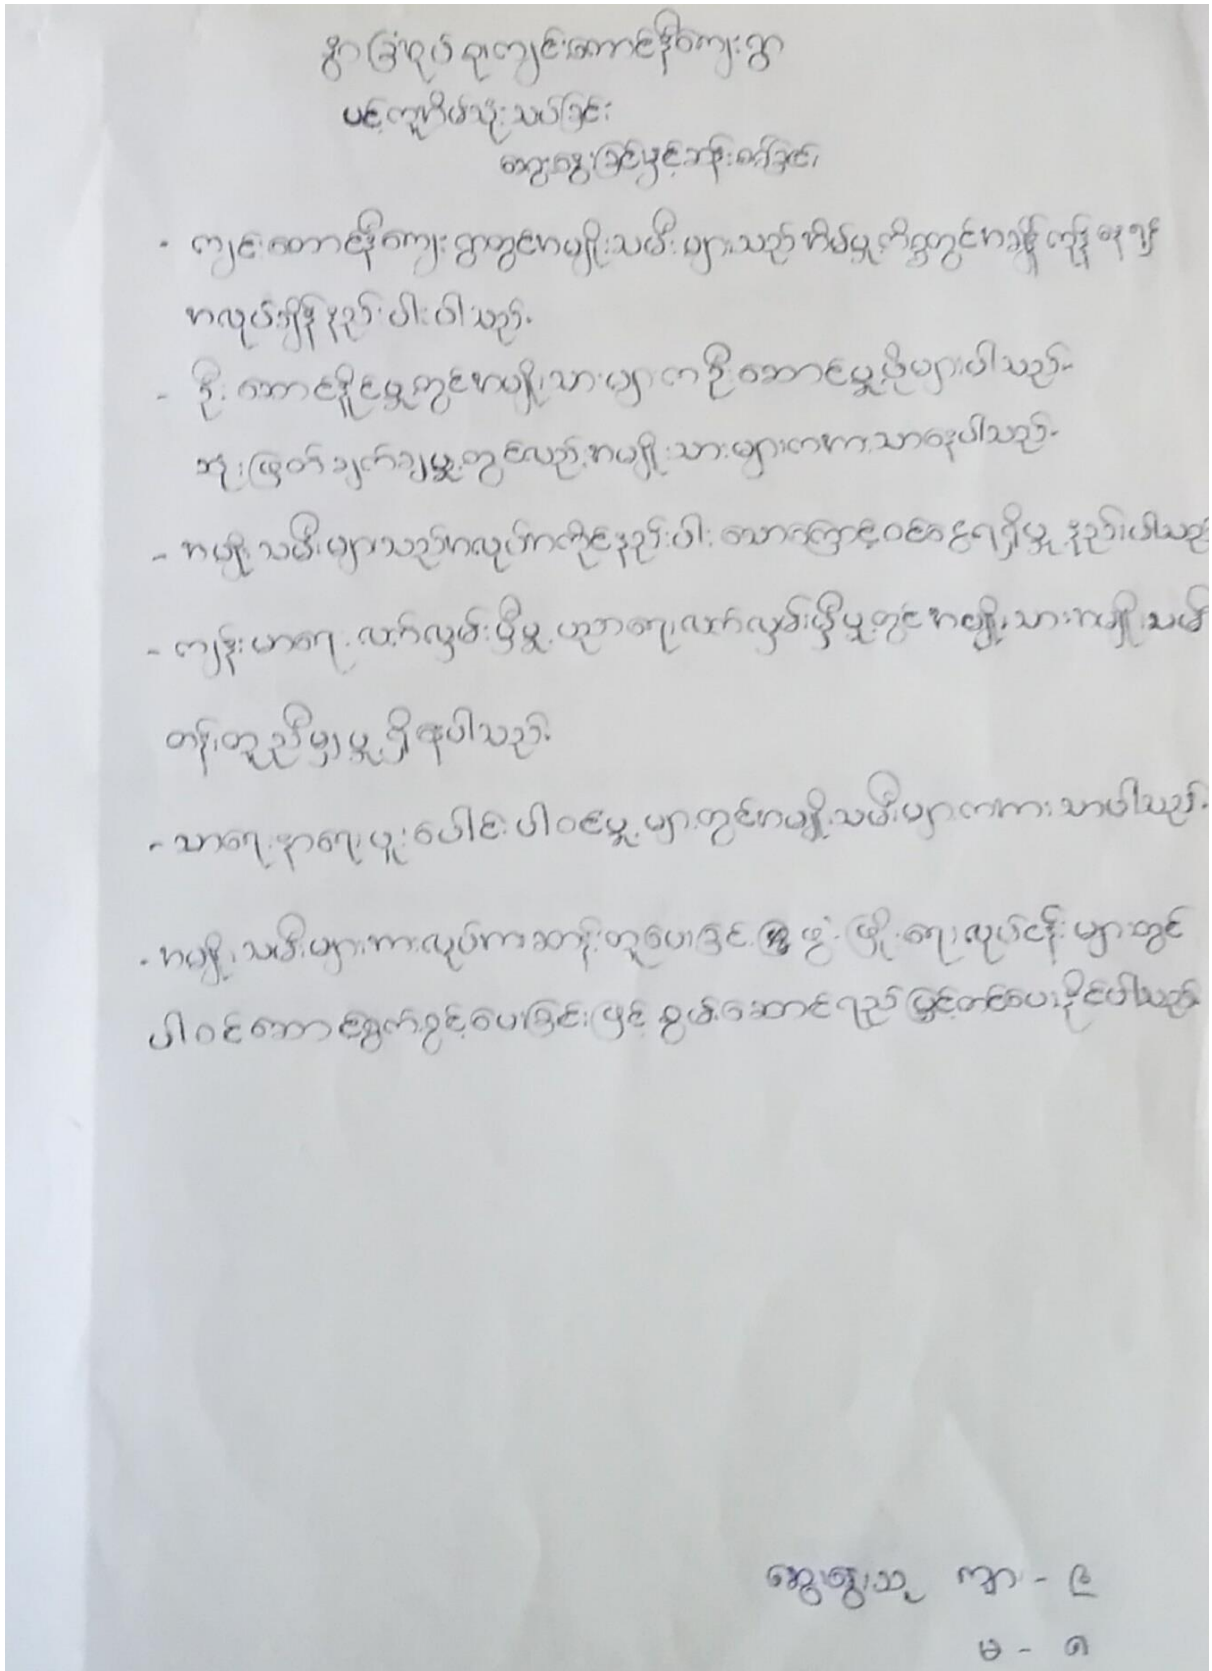 နွားခြံစုပ်စု၊ ကျင်းတောင်နီကျေးရွာ
ပင့်ကူအိမ်သုံးသပ်ခြင်း
ဆွေးနွေးခြင်းမှင့်ဆန်းစစ်ခြင်း
- ကျင်းတောင်နီကျေးရွာတွင်အမျိုးသမီးများသည်အိမ်မှုကိစ္စတွင်အချိန်ကုန်နေ၍
အလုပ်ချိန်နည်းပါးပါသည်။
- ဦးဆောင်နိူင်မှုတွင်အမျိုးသားများကဦးဆောင်မှုပိုများပါသည်။
ဆုံးဖြတ်ချက်ချမှုတွင်လည်းအမျိုးသားများကအားသာနေပါသည်။
- အမျိုးသမီးများသည်အလုပ်အကိုင်နည်းပါးသောကြောင့်ဝင်ငွေရရှိမှုနည်းပါသည်
- ကျန်းမာရေးလက်လှမ်းမှီမှု၊ ပညာရေးလက်လှမ်းမှီမှုတွင်အမျိုးသားအမျိုးသမီး
တန်းတူညီမျှမှုရှိနေပါသည်။
- သာရေးနာရေးပူးပေါင်းပါဝင်မှုများတွင်အမျိုးသမီးများကအားသာပါသည်။
- အမျိုးသမီးများအားလုပ်အားခတန်းတူပေးခြင်း ဖွံ့ဖြိုးရေးလုပ်ငန်းများတွင်
ပါဝင်ဆောင်ရွက်ခွင့်ပေးခြင်းဖြင့်စွမ်းဆောင်ရည်မြှင့်တင်ပေးနိုင်ပါသည်။
ဆွေးနွေးသူ ကျား - ၉
မ - ၈